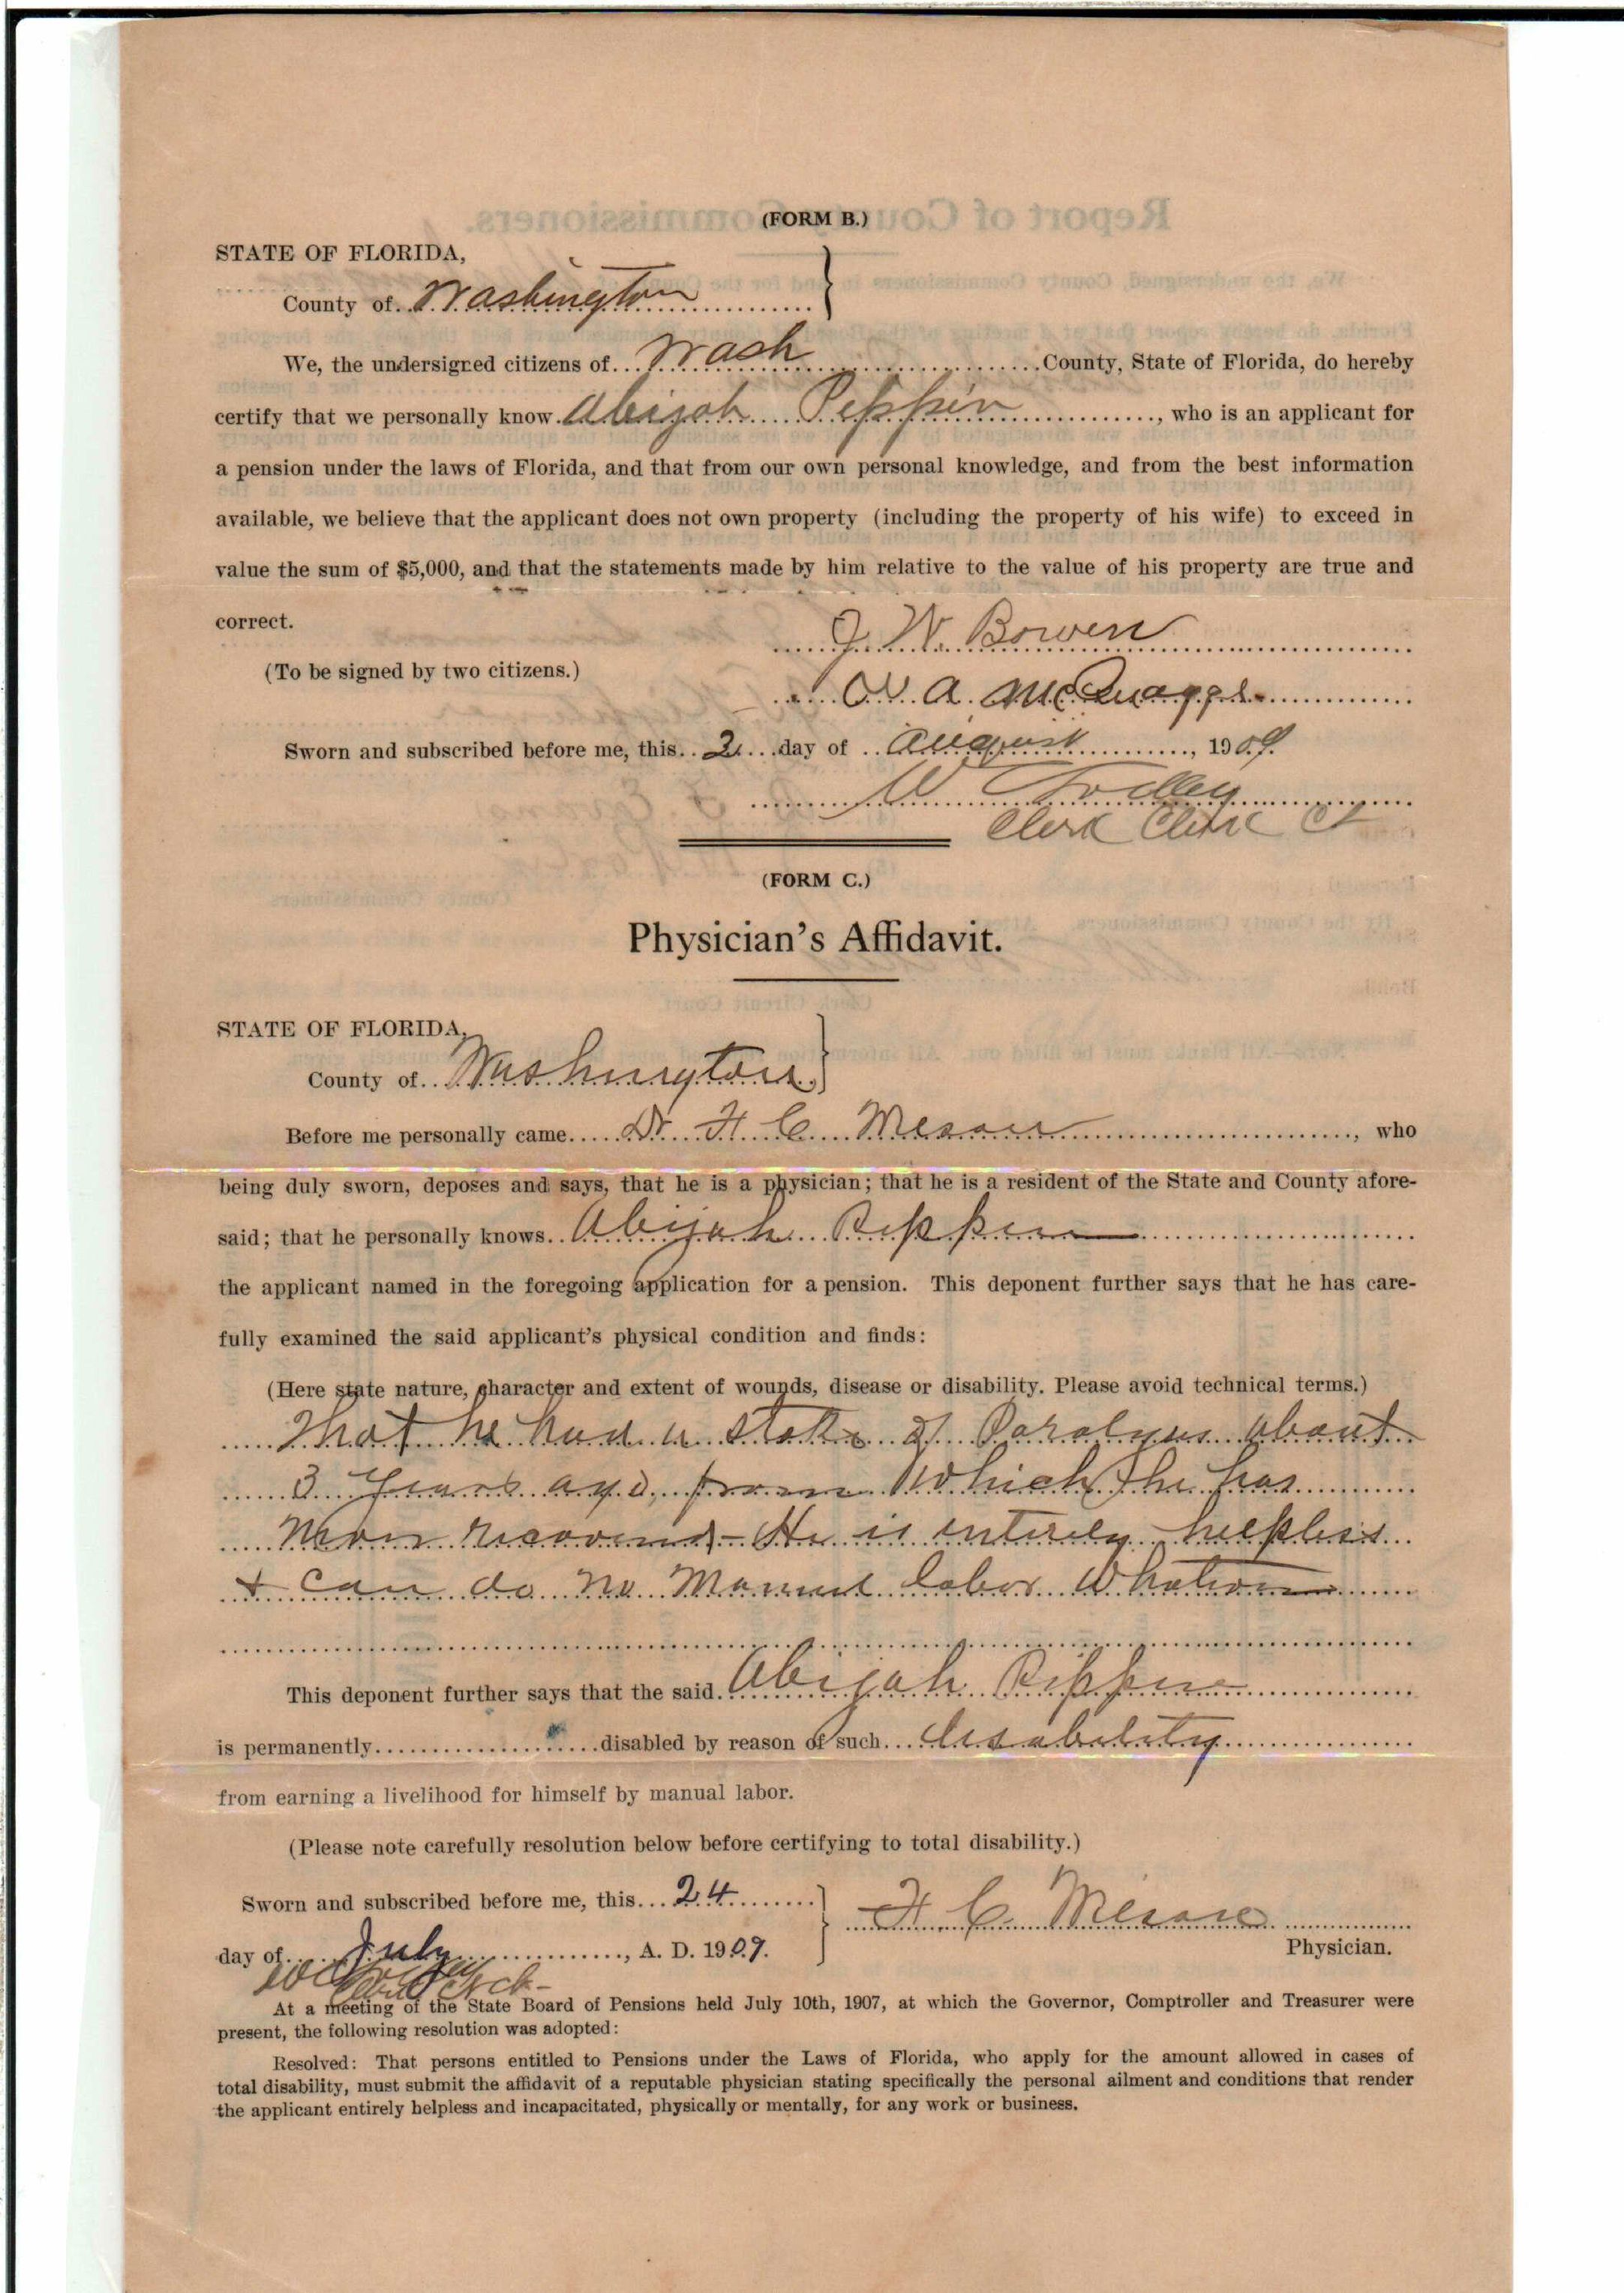 (FORM B.)
STATE OF FLORIDA,
County of Washington
We, the undersigned citizens of Wash County, State of Florida, do hereby
certify that we personally know Abijah Pippin, who is an applicant for
a pension under the laws of Florida, and that from our own personal knowledge, and from the best information
available, we believe that the applicant does not own property (including the property of his wife) to exceed in
value the sum of $5,000, and that the statements made by him relative to the value of his property are true and
correct.
J. W. Bowen
(To be signed by two citizens.)
A. McQuagge
Sworn and subscribed before me, this 2 day of August, 1909.
W
Clerk Circ Ct
(FORM C.)
Physician's Affidavit.
STATE OF FLORIDA,
County of Washington
Before me personally came Dr H C Mesou, who
being duly sworn, deposes and says, that he is a physician; that he is a resident of the State and County afore-
said; that he personally knows Abijah Pippin
the applicant named in the foregoing application for a pension. This deponent further says that he has care-
fully examined the said applicant's physical condition and finds:
(Here state nature, character and extent of wounds, disease or disability. Please avoid technical terms.)
That he had a stoke of Paralysis about
3 Years ago, from which he has
never recovered - He is entirely helpless
& can do no Manual labor Whatever
This deponent further says that the said Abijah Pippin
is permanently disabled by reason of such disability
from earning a livelihood for himself by manual labor.
(Please note carefully resolution below before certifying to total disability.)
Sworn and subscribed before me, this 24
H C
day of July, A. D. 1909.
Physician.
At a meeting of the State Board of Pensions held July 10th, 1907, at which the Governor, Comptroller and Treasurer were
present, the following resolution was adopted:
Resolved: That persons entitled to Pensions under the Laws of Florida, who apply for the amount allowed in cases of
total disability, must submit the affidavit of a reputable physician stating specifically the personal ailment and conditions that render
the applicant entirely helpless and incapacitated, physically or mentally, for any work or business.